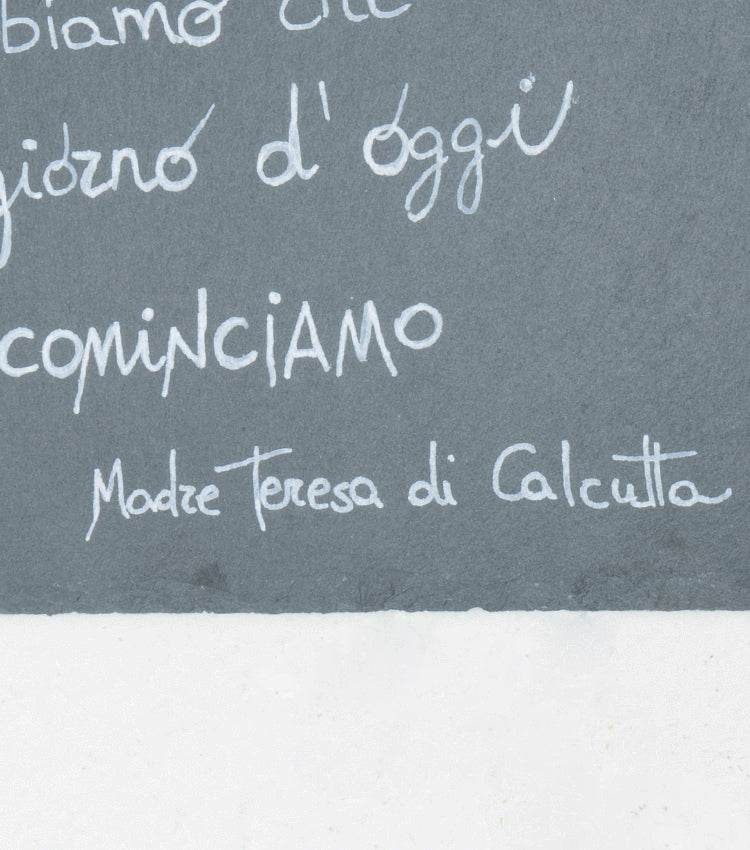 biamo che
giorno d'oggi
cominciamo
Madre Teresa di Calcutta